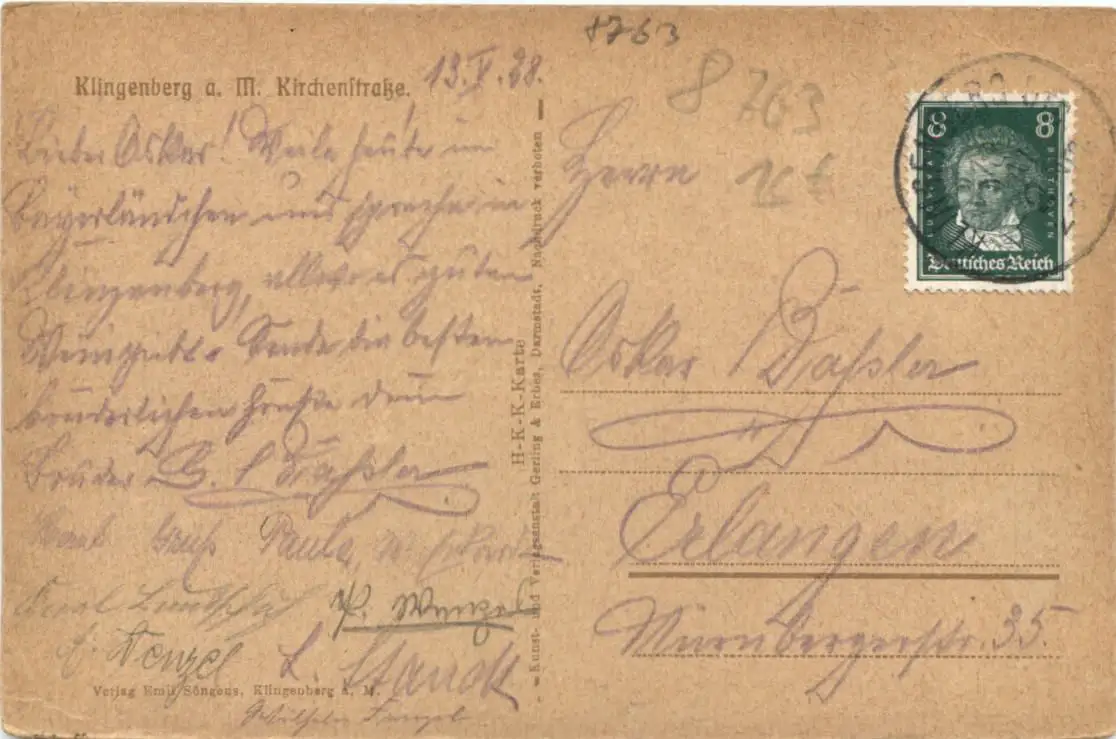 8763
Klingenberg a. M. Kirchenstraße.
13.V.28.
Lieber Oskar! Weile heute im
Bayerländchen und zwar in
Klingenberg, allwo es guten
Wein gibt. Sende die besten
brüderlichen Grüße dein
Bruder
Gruß Paula
Karl
P. Wenzel
Wenzel
L. Staudt
Wilhelm
Verlag Emil Söngens, Klingenberg a. M.
H-K-K-Karte
Kunst- und Verlagsanstalt Gerling & Erbes, Darmstadt, Nachdruck verboten
8 763
8 8
LUDWIG VAN BEETHOVEN
Deutsches Reich
Herrn
Oskar Däßler
Erlangen
Nürnbergerstr. 35.